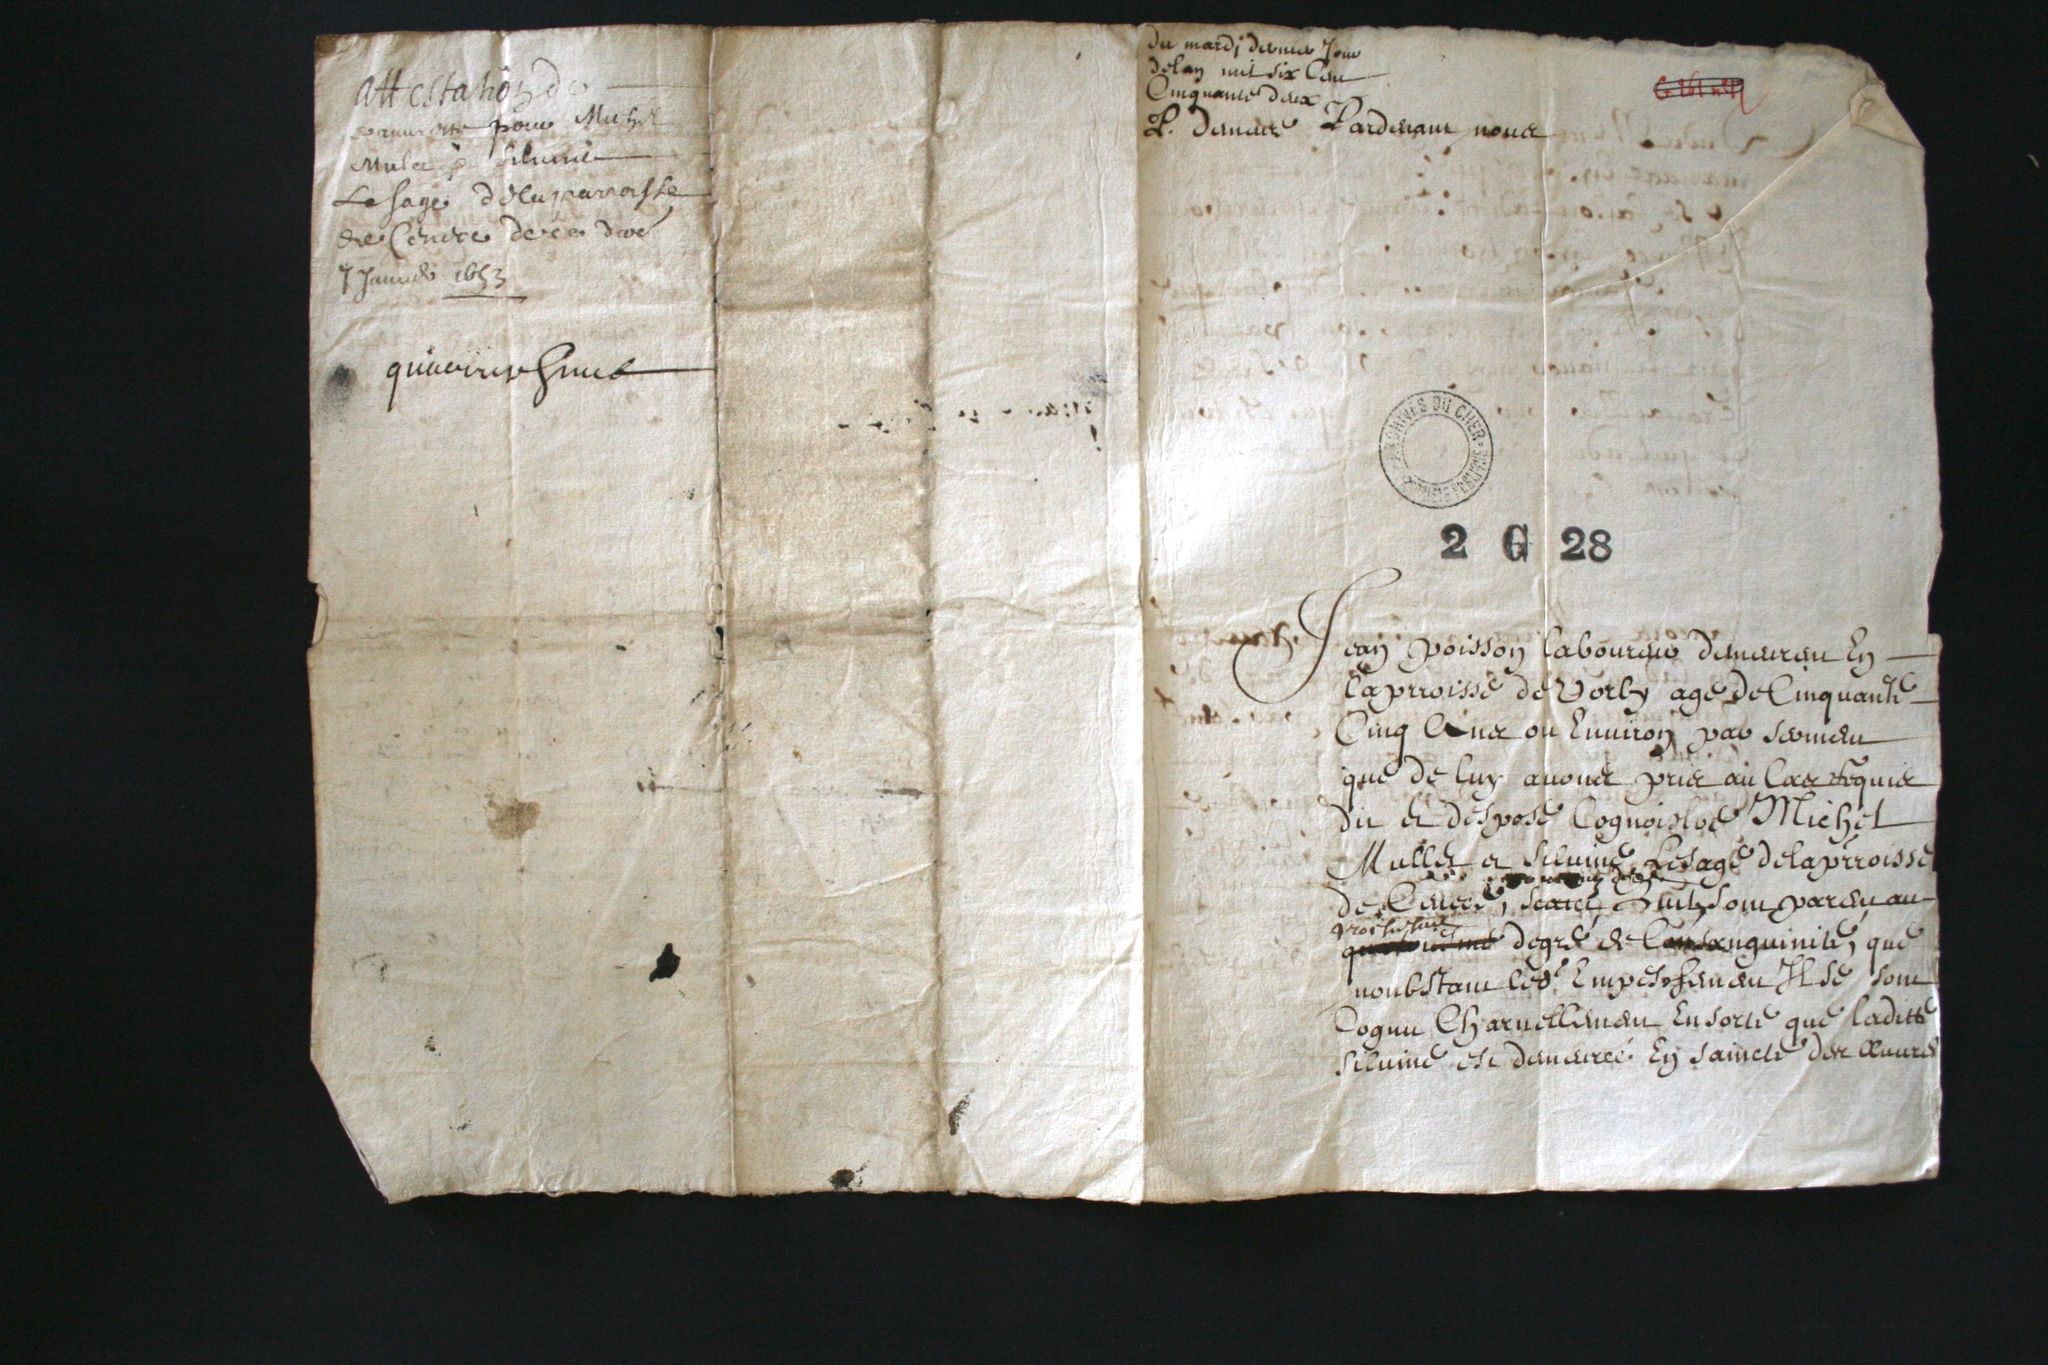 Attestation de
pour Michel
Mulet et Silvine
Le Sage de la parroisse
de Cencre de ce dioé
7 Janvier 1653
du mardj dernier Jour
de lan mil six Cen
Cinquante deux
P. dencre Pardevant nous
ARCHIVES DU CHER
2 G 28
Jean poisson laboureur demeurant En
la prroisse de Vorly age de Cinquante
Cinq Ans ou Environ par serment
que de luy avons pris au Cas Requis
dit et despose Cognoistre Michel
Mullet et Silvine Lesage de la prroisse
de sont parent au
troisiesme
degré de Consanguinité, que
nonbstant led. Empeschement Il se sont
Cognu Charnellement En sorte que laditte
Silvine est demeuree En saincte des Œuvres